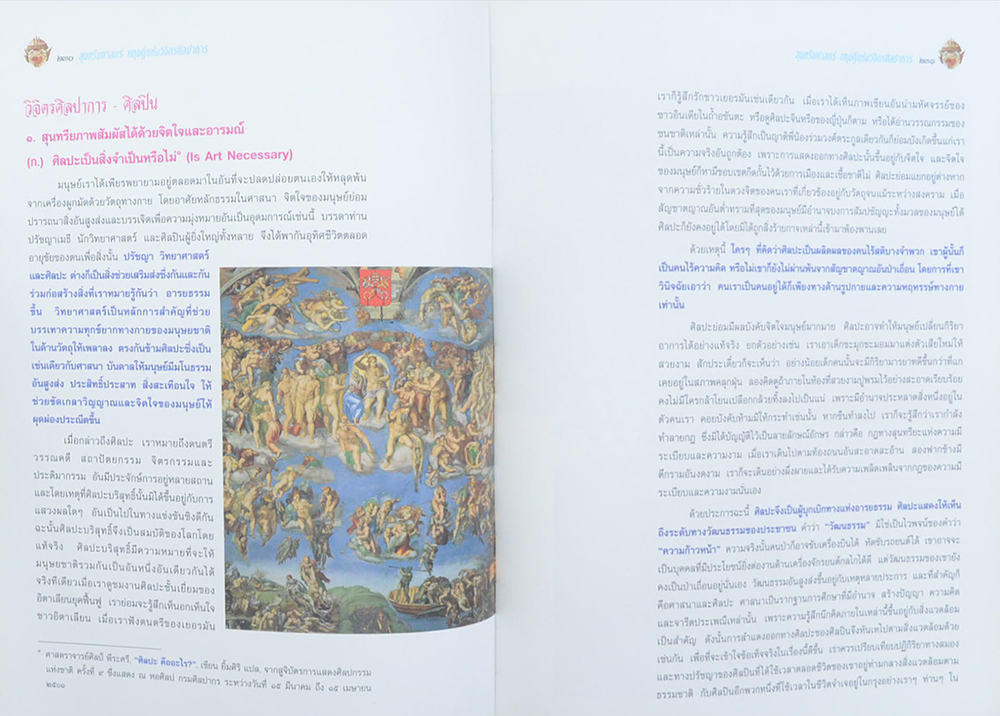 ๒๓๐ สุนทรียศาสตร์ ทฤษฎีแห่งวิจิตรศิลปาการ
วิจิตรศิลปาการ - ศิลปิน
๑. สุนทรียภาพสัมผัสได้ด้วยจิตใจและอารมณ์
(ก.) ศิลปะเป็นสิ่งจำเป็นหรือไม่* (Is Art Necessary)
มนุษย์เราได้เพียรพยายามอยู่ตลอดมาในอันที่จะปลดปล่อยตนเองให้หลุดพ้น
จากเครื่องผูกมัดด้วยวัตถุทางกาย โดยอาศัยหลักธรรมในศาสนา จิตใจของมนุษย์ย่อม
ปรารถนาสิ่งอันสูงส่งและบรรเจิดเพื่อความมุ่งหมายอันเป็นอุดมการณ์เช่นนี้ บรรดาท่าน
ปรัชญาเมธี นักวิทยาศาสตร์ และศิลปินผู้ยิ่งใหญ่ทั้งหลาย จึงได้พากันอุทิศชีวิตตลอด
อายุขัยของตนเพื่อสิ่งนั้น ปรัชญา วิทยาศาสตร์
และศิลปะ ต่างก็เป็นสิ่งช่วยเสริมส่งซึ่งกันและกัน
ร่วมก่อสร้างสิ่งที่เราหมายรู้กันว่า อารยธรรม
ขึ้น วิทยาศาสตร์เป็นหลักการสำคัญที่ช่วย
บรรเทาความทุกข์ยากทางกายของมนุษยชาติ
ในด้านวัตถุให้เพลาลง ตรงกันข้ามศิลปะซึ่งเป็น
เช่นเดียวกับศาสนา บันดาลให้มนุษย์มีมโนธรรม
อันสูงส่ง ประสิทธิ์ประสาท สิ่งสะเทือนใจ ให้
ช่วยขัดเกลาวิญญาณและจิตใจของมนุษย์ให้
ผุดผ่องประณีตขึ้น
เมื่อกล่าวถึงศิลปะ เราหมายถึงดนตรี
วรรณคดี สถาปัตยกรรม จิตรกรรมและ
ประติมากรรม อันมีประจักษ์การอยู่หลายสถาน
และโดยเหตุที่ศิลปะบริสุทธิ์นั้นมิได้ขึ้นอยู่กับการ
แสวงผลใดๆ อันเป็นไปในทางแข่งขันชิงดีกัน
ฉะนั้นศิลปะบริสุทธิ์จึงเป็นสมบัติของโลกโดย
แท้จริง ศิลปะบริสุทธิ์มีความหมายที่จะให้
มนุษยชาติรวมกันเป็นอันหนึ่งอันเดียวกันได้
จริงทีเดียวเมื่อเราดูชมงานศิลปะชั้นเยี่ยมของ
อิตาเลียนยุคฟื้นฟู เราย่อมจะรู้สึกเห็นอกเห็นใจ
ชาวอิตาเลียน เมื่อเราฟังดนตรีของเยอรมัน
* ศาสตราจารย์ศิลป์ พีระศรี. "ศิลปะ คืออะไร?", เขียน ยิ้มศิริ แปล, จากสูจิบัตรการแสดงศิลปกรรม
แห่งชาติ ครั้งที่ ๙ ซึ่งแสดง ณ หอศิลป กรมศิลปากร ระหว่างวันที่ ๑๕ มีนาคม ถึง ๑๕ เมษายน
๒๕๐๑
สุนทรียศาสตร์ ทฤษฎีแห่งวิจิตรศิลปาการ ๒๓๑
เราก็รู้สึกรักชาวเยอรมันเช่นเดียวกัน เมื่อเราได้เห็นภาพเขียนอันน่ามหัศจรรย์ของ
ชาวอินเดียในถ้ำอชันตะ หรือดูศิลปะจีนหรือของญี่ปุ่นก็ตาม หรือได้อ่านวรรณกรรมของ
ชนชาติเหล่านั้น ความรู้สึกเป็นญาติพี่น้องร่วมวงศ์ตระกูลเดียวกันก็ย่อมบังเกิดขึ้นแก่เรา
นี้เป็นความจริงอันถูกต้อง เพราะการแสดงออกทางศิลปะนั้นขึ้นอยู่กับจิตใจ และจิตใจ
ของมนุษย์ก็หามีขอบเขตกีดกั้นไว้ด้วยการเมืองและเชื้อชาติไม่ ศิลปะย่อมแยกอยู่ต่างหาก
จากความชั่วร้ายในดวงจิตของคนเราที่เกี่ยวข้องอยู่กับวัตถุจนแม้ระหว่างสงคราม เมื่อ
สัญชาตญาณอันต่ำทรามที่สุดของมนุษย์มีอำนาจบงการสัมปชัญญะทั้งมวลของมนุษย์ได้
ศิลปะก็ยังคงอยู่ได้โดยมิได้ถูกสิ่งร้ายกาจเหล่านี้เข้ามาพ้องพานเลย
ด้วยเหตุนี้ ใครๆ ที่คิดว่าศิลปะเป็นผลิตผลของคนไร้สติบางจำพวก เขาผู้นั้นก็
เป็นคนไร้ความคิด หรือไม่เขาก็ยังไม่ผ่านพ้นจากสัญชาตญาณอันป่าเถื่อน โดยการที่เขา
วินิจฉัยเอาว่า คนเราเป็นคนอยู่ได้ก็เพียงทางด้านรูปกายและความหฤหรรษ์ทางกาย
เท่านั้น
ศิลปะย่อมมีผลบังคับจิตใจมนุษย์มากมาย ศิลปะอาจทำให้มนุษย์เปลี่ยนกิริยา
อาการได้อย่างแท้จริง ยกตัวอย่างเช่น เราเอาเด็กขะมุกขะมอมมาแต่งตัวเสียใหม่ให้
สวยงาม สักประเดี๋ยวก็จะเห็นว่า อย่างน้อยเด็กคนนั้นจะมีกิริยามารยาทดีขึ้นกว่าที่แก
เคยอยู่ในสภาพคลุกฝุ่น ลองคิดดูถ้าภายในห้องที่สวยงามปูพรมไว้อย่างสะอาดเรียบร้อย
คงไม่มีใครกล้าโยนเปลือกกล้วยทิ้งลงไปเป็นแน่ เพราะมีอำนาจประหลาดสิ่งหนึ่งอยู่ใน
ตัวคนเรา คอยบังคับห้ามมิให้กระทำเช่นนั้น หากขืนทำลงไป เราก็จะรู้สึกว่าเรากำลัง
ทำลายกฎ ซึ่งมิได้บัญญัติไว้เป็นลายลักษณ์อักษร กล่าวคือ กฎทางสุนทรียะแห่งความมี
ระเบียบและความงาม เมื่อเราเดินไปตามท้องถนนอันสะอาดสะอ้าน สองฟากข้างมี
ตึกรามอันงดงาม เราก็จะเดินอย่างผึ่งผายและได้รับความเพลิดเพลินจากกฎของความมี
ระเบียบและความงามนั่นเอง
ด้วยประการฉะนี้ ศิลปะจึงเป็นผู้บุกเบิกทางแห่งอารยธรรม ศิลปะแสดงให้เห็น
ถึงระดับทางวัฒนธรรมของประชาชน คำว่า "วัฒนธรรม" มิใช่เป็นไวพจน์ของคำว่า
"ความก้าวหน้า" ความจริงนั้นคนป่าก็อาจขับเครื่องบินได้ หัดขับรถยนต์ได้ เขาอาจจะ
เป็นบุคคลที่มีประโยชน์ยิ่งต่องานด้านเครื่องจักรยนต์กลไกได้ดี แต่วัฒนธรรมของเขายัง
คงเป็นป่าเถื่อนอยู่นั่นเอง วัฒนธรรมอันสูงส่งขึ้นอยู่กับเหตุหลายประการ และที่สำคัญก็
คือศาสนาและศิลปะ ศาสนาเป็นรากฐานการศึกษาที่มีอำนาจ สร้างปัญญา ความคิด
และจารีตประเพณีเหล่านั้น เพราะความรู้สึกนึกคิดภายในเหล่านี้ขึ้นอยู่กับสิ่งแวดล้อม
เป็นสำคัญ ดังนั้นการสำแดงออกทางศิลปะของศิลปินจึงหันเหไปตามสิ่งแวดล้อมด้วย
เช่นกัน เพื่อที่จะเข้าใจข้อเท็จจริงในเรื่องนี้ดีขึ้น เราควรเปรียบเทียบปฏิกิริยาทางสมอง
และทางปรัชญาของศิลปินที่ได้ใช้เวลาตลอดชีวิตของเขาอยู่ท่ามกลางสิ่งแวดล้อมตาม
ธรรมชาติ กับศิลปินอีกพวกหนึ่งที่ใช้เวลาในชีวิตจำเจอยู่ในกรุงอย่างเราๆ ท่านๆ ใน